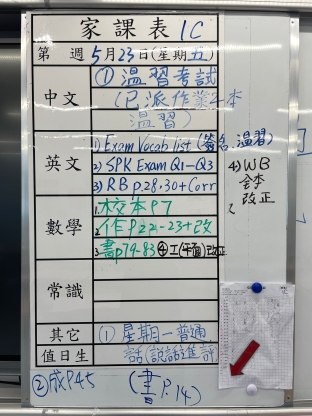 家課表 1C
第 週 5月23日(星期五)
中文
① 溫習考試
(已派作業4本
溫習)
英文
1) Exam Vocab list (簽名,溫習)
2) SPK Exam Q1-Q3
3) RB p.28,30+Corr
4) WB
改正
數學
1. 校本P7
2. 作P22-23+改
3. 書p79-83 ④工(平面)改正
常識
其它
① 星期一普通
話(說話進評)
值日生
② 成P45
(書P.14)